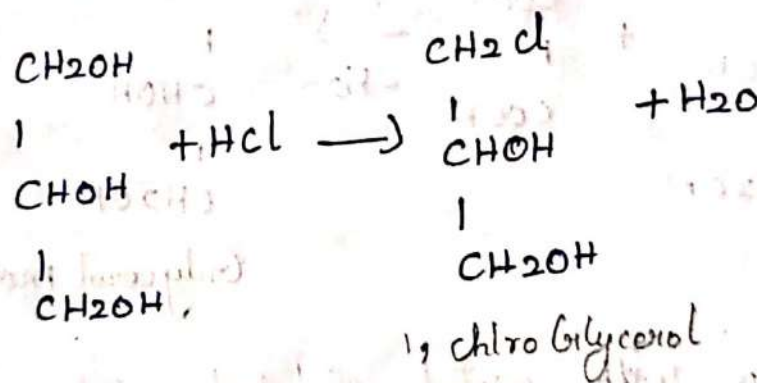 CH2OH
|
CHOH
|
CH2OH.
+ HCl →
CH2Cl
|
CHOH
|
CH2OH
+ H2O
1, chlro Glycerol